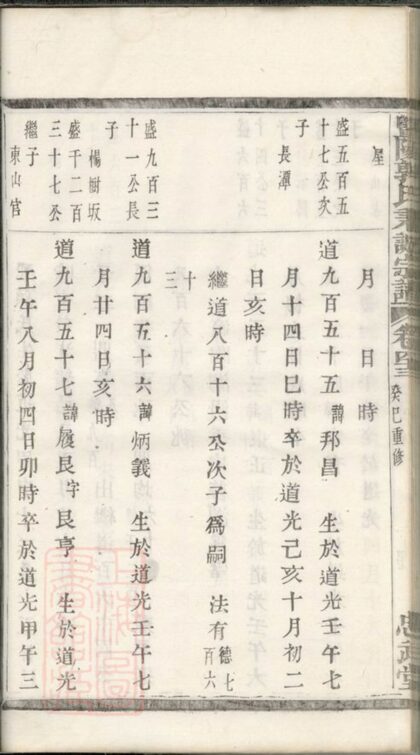 暨陽郭氏宗譜
卷
癸巳重修
忠武堂
屋
月 日時
盛五百五
十七公次
子
長潭
道九百五十五諱邦昌 生於道光壬午七
月十四日巳時卒於道光己亥十月初二
日亥時
繼道八百十六公次子為嗣 法有德七百六
十三
盛九百三
十一公長
子
楊樹坂
道九百五十六諱炳義 生於道光壬午七
月廿四日亥時
盛千二百
三十七公
繼子
東山官
道九百五十七諱履艮字艮亨 生於道光
壬午八月初四日卯時卒於道光甲午三